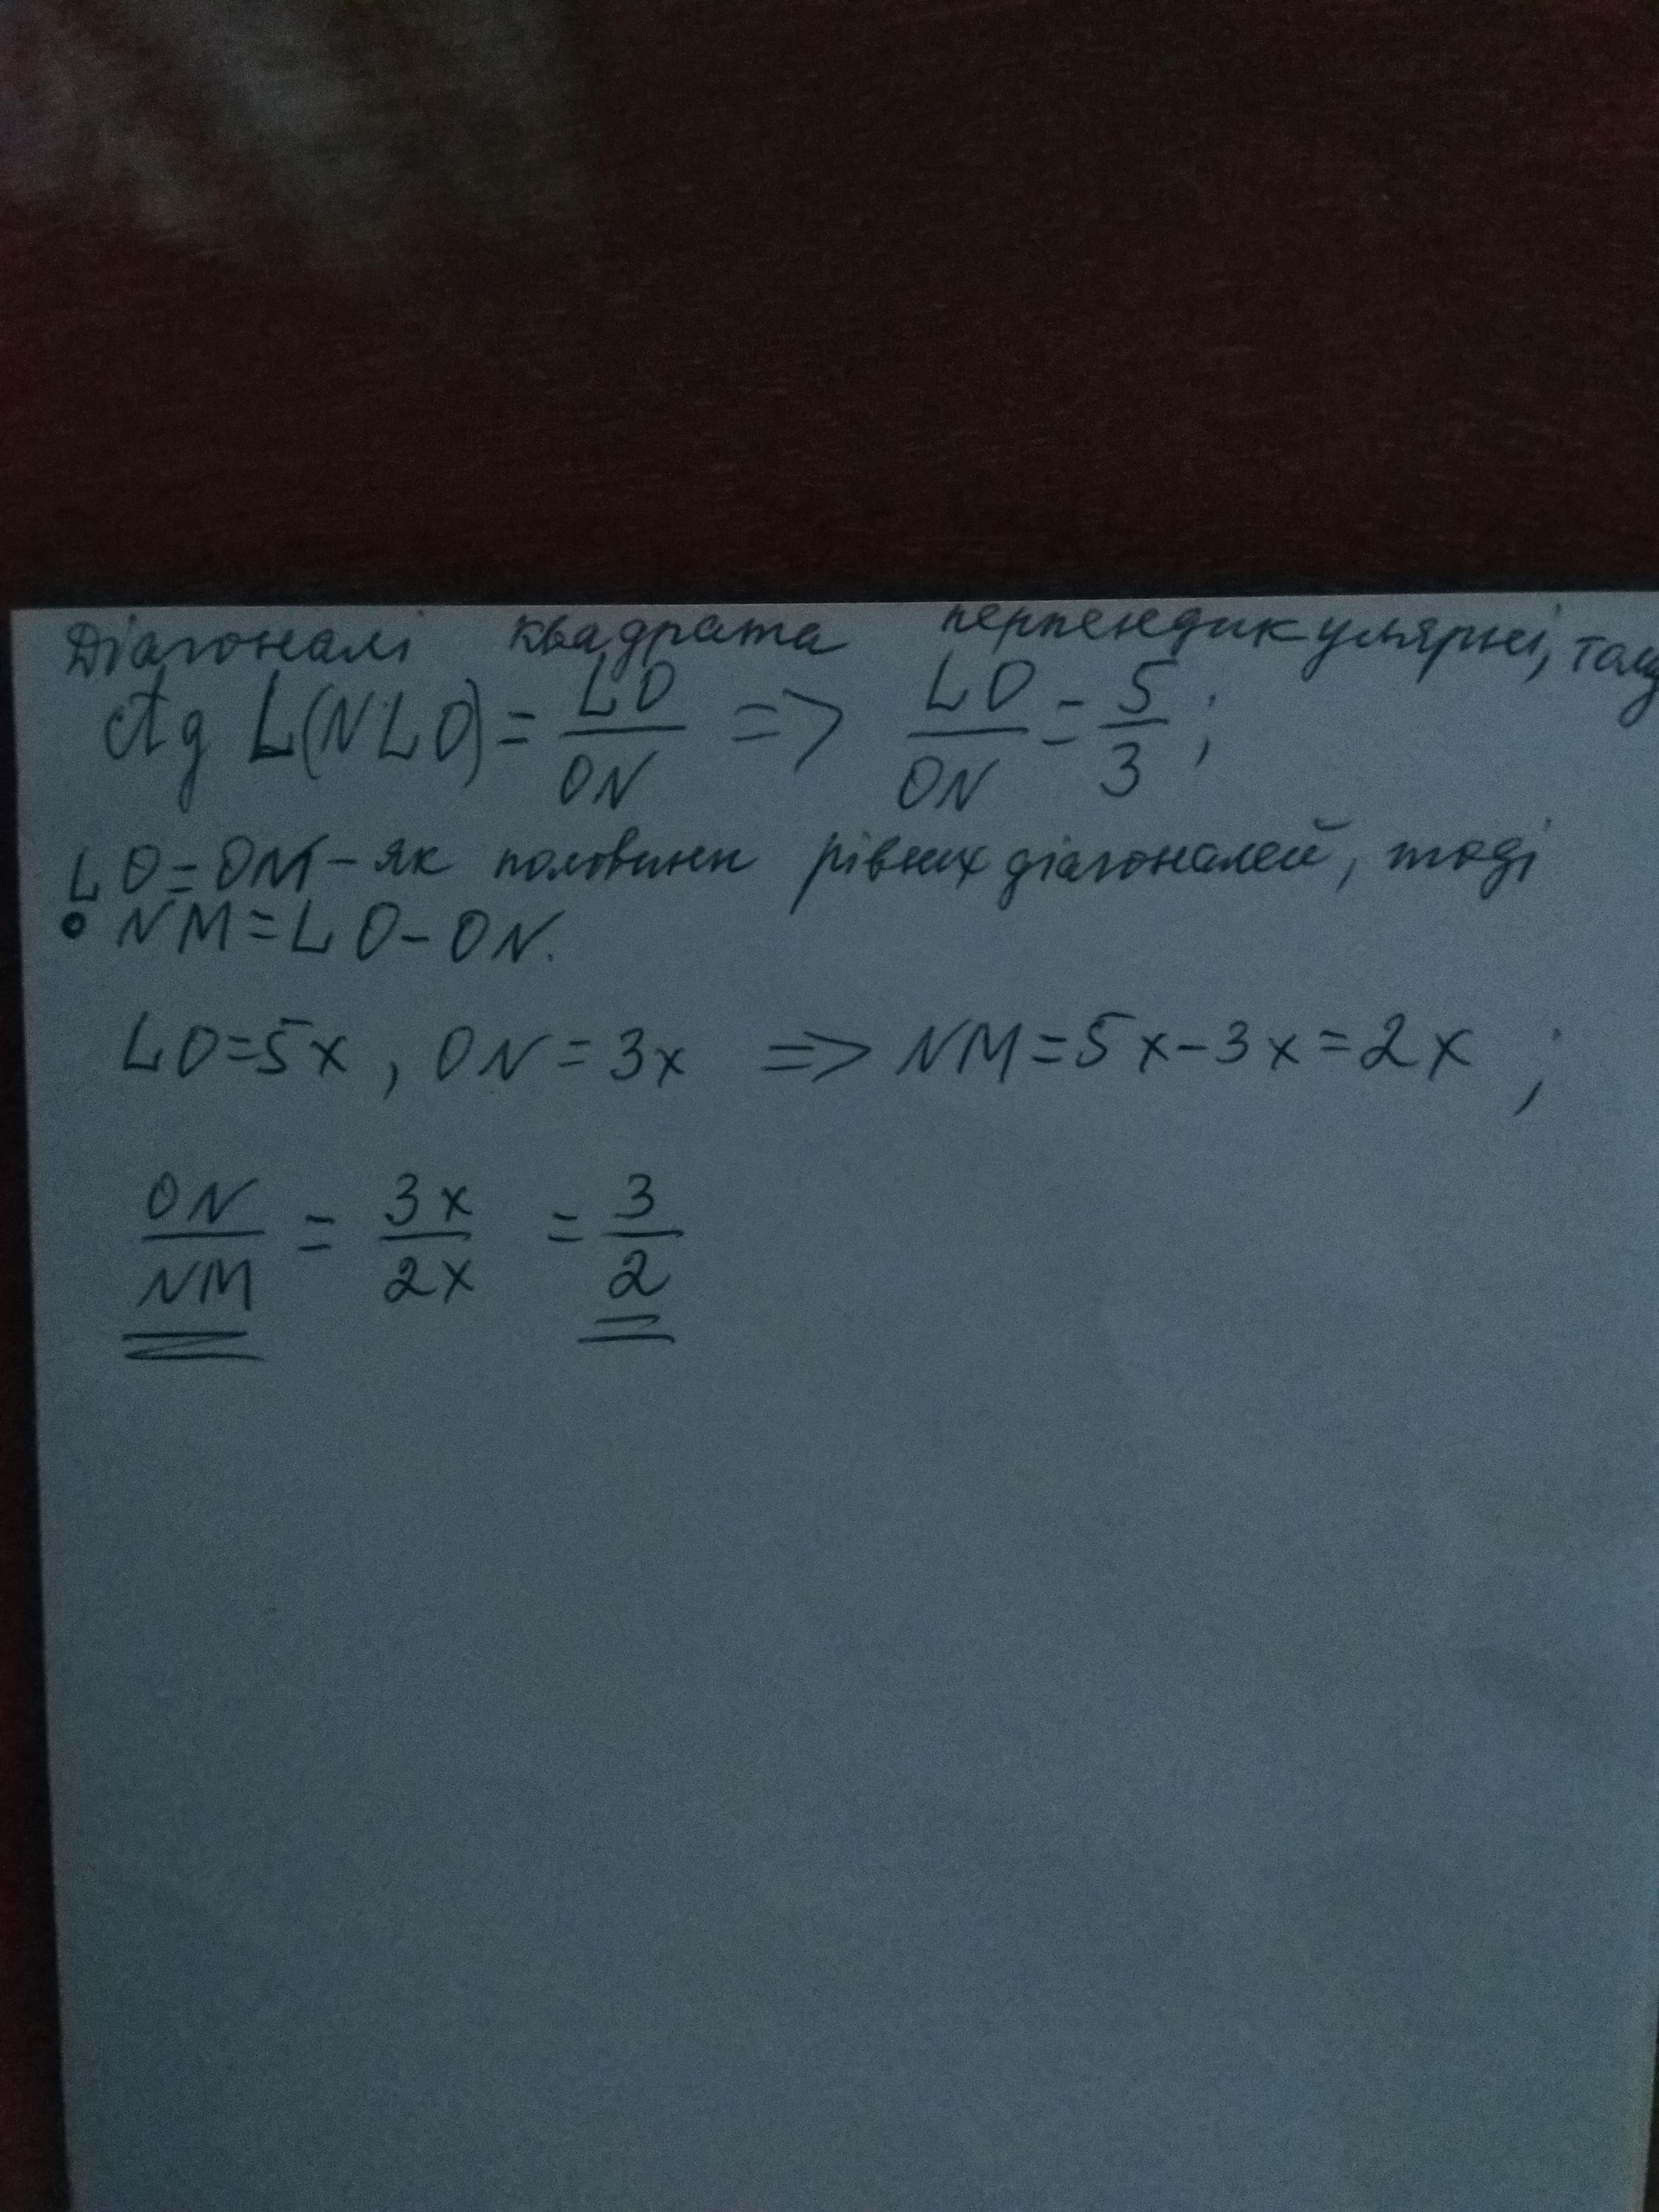 Діагоналі квадрата перпендикулярні, тому
ctg L(NLO) = LO/ON => LO/ON = 5/3;
LO=OM – як половини рівних діагоналей, тоді
NM=LO-ON.
LO=5x, ON=3x => NM=5x-3x=2x;
ON/NM = 3x/2x = 3/2